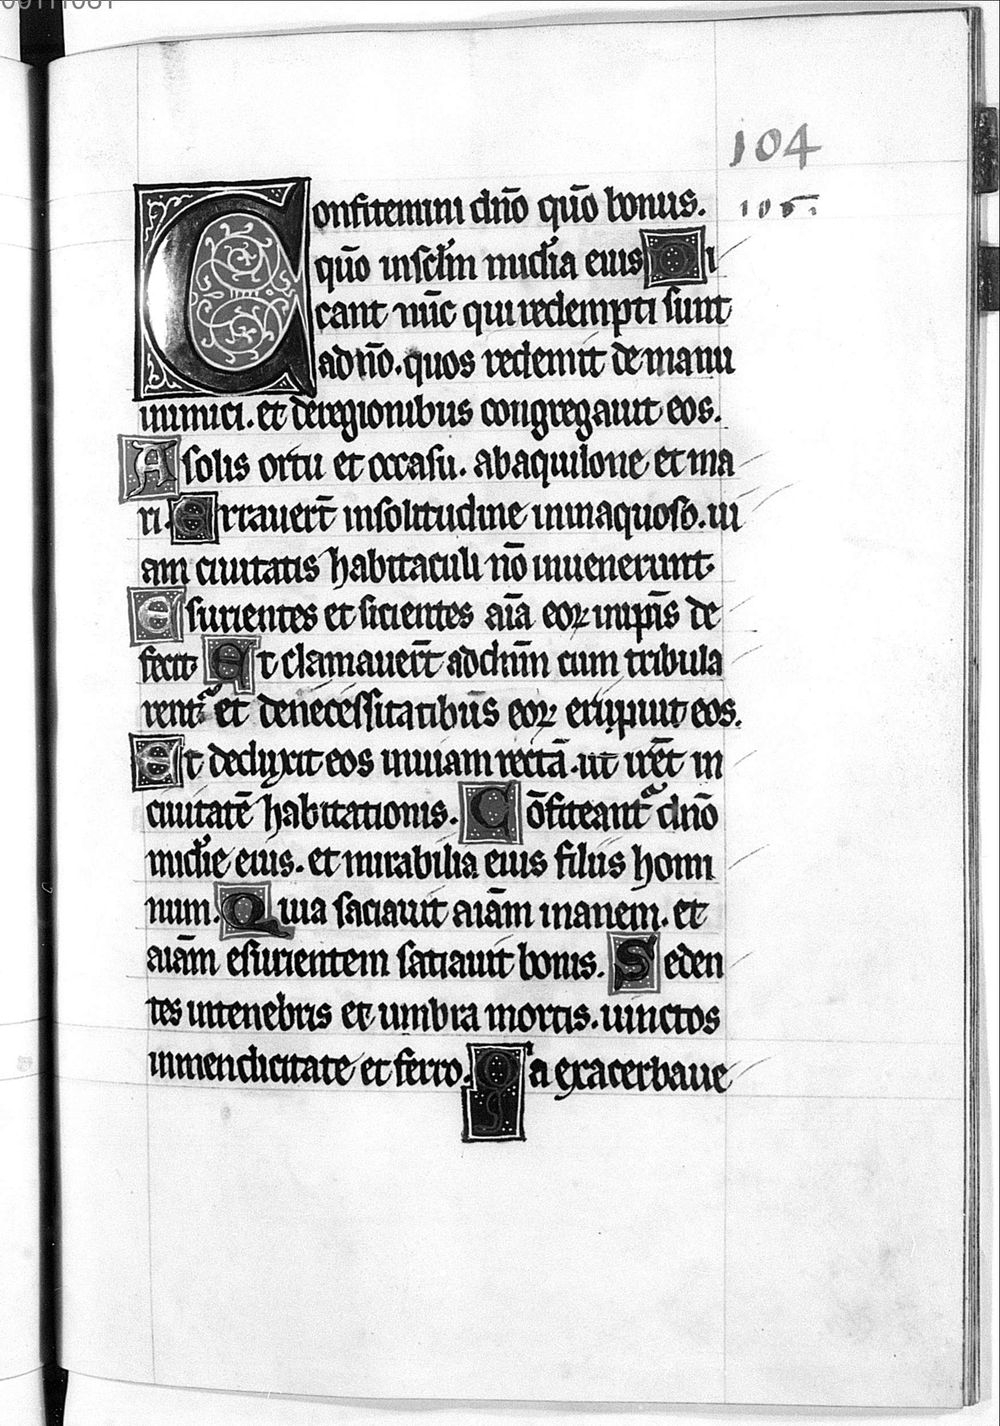 104
Confitemini dño qũo bonus.
106.
qũo in sclm̃ mi͠dia eius Di
cant nũc qui redempti sunt
a dño. quos redemit de manu
inimici. et de regionibus congregauit eos.
A solis ortu et occasu. ab aquilone et ma
ri. Errauer̃t in solitudine in inaquoso. ui
am ciuitatis habitaculi nõ inuenerunt.
Esurientes et sicientes aĩa eoꝝ in ip̃is de
fecit Et clamauer̃t ad dñm cum tribula
rent᷑ et de necessitatibus eoꝝ eripuit eos.
Et deduxit eos in uiam rectã. ut irẽt in
ciuitatẽ habitationis. Cõfiteant᷑ dño
mi͠die eius. et mirabilia eius filiis homi
num. Quia saciauit aĩam inanem. et
aĩam esurientem satiauit bonis. Seden
tes in tenebris et umbra mortis. uinctos
in mendicitate et ferro. Qa exacerbaue